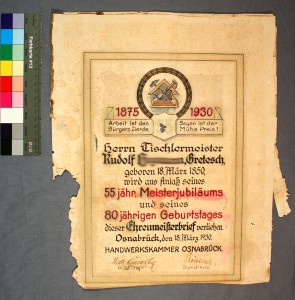 1875 1930
Arbeit ist des Segen ist der
Bürgers Zierde, Mühe Preis!
Herrn Tischlermeister
Rudolf Gretesch,
geboren 18. März 1850,
wird aus Anlaß seines
55 jähr. Meisterjubiläums
und seines
80 jährigen Geburtstages
dieser Ehrenmeisterbrief verliehen.
Osnabrück, den 18. März 1930.
HANDWERKSKAMMER OSNABRÜCK.
Syndikus.